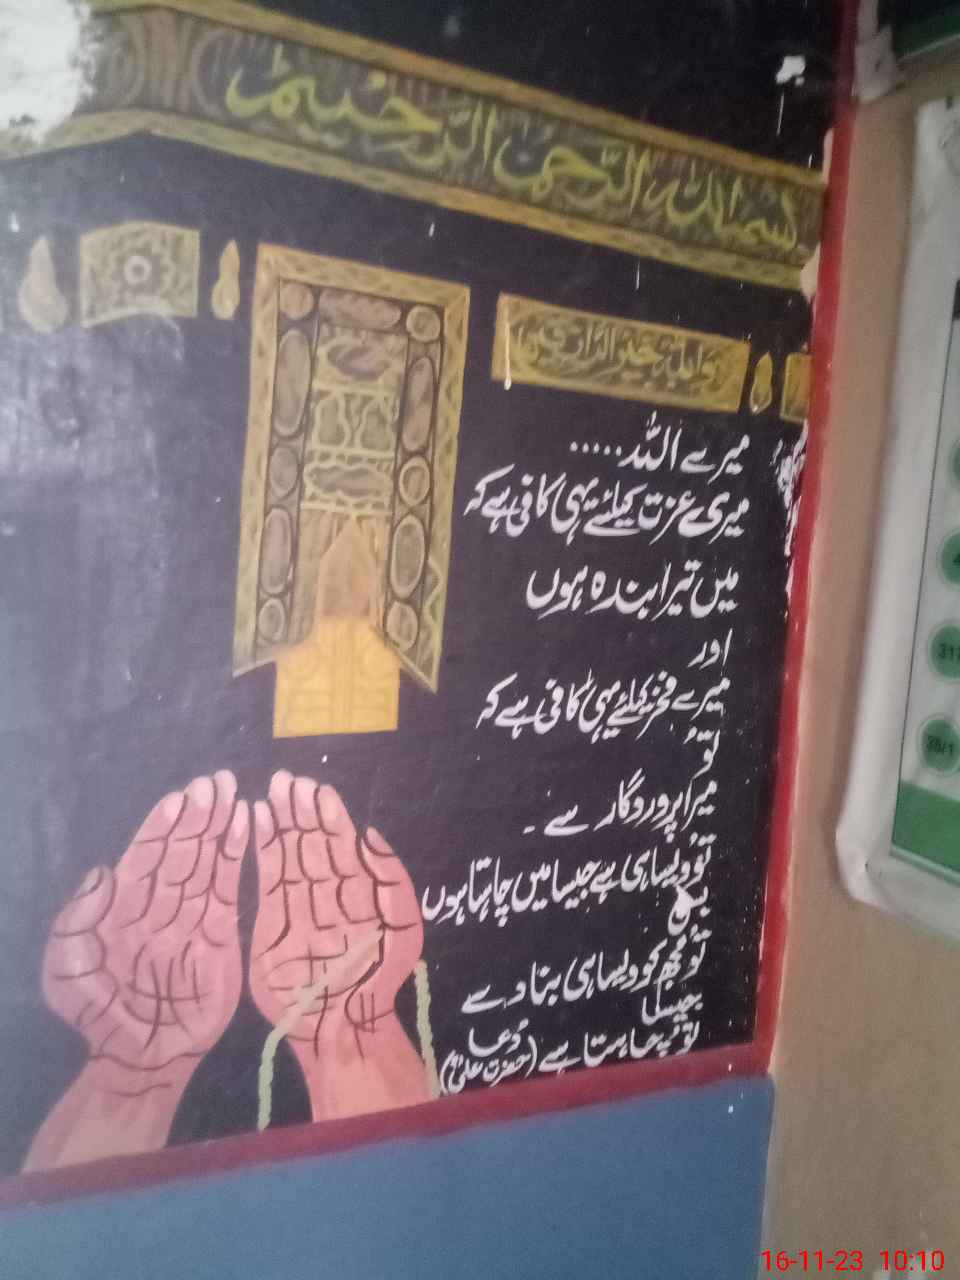 بسم الله الرحمن الرحيم
والله خير الرازقين
میرے اللہ.....
میری عزت کیلئے یہی کافی ہے کہ
میں تیرا بندہ ہوں
اور
میرے فخر کیلئے یہی کافی ہے کہ
تُو
میرا پروردگار ہے -
تُو ویسا ہی ہے جیسا میں چاہتا ہوں
بس
تُو مجھ کو ویسا ہی بنا دے
جیسا
تُو چاہتا ہے (دُعا حضرت علیؓ)
317
38/1
16-11-23 10:10